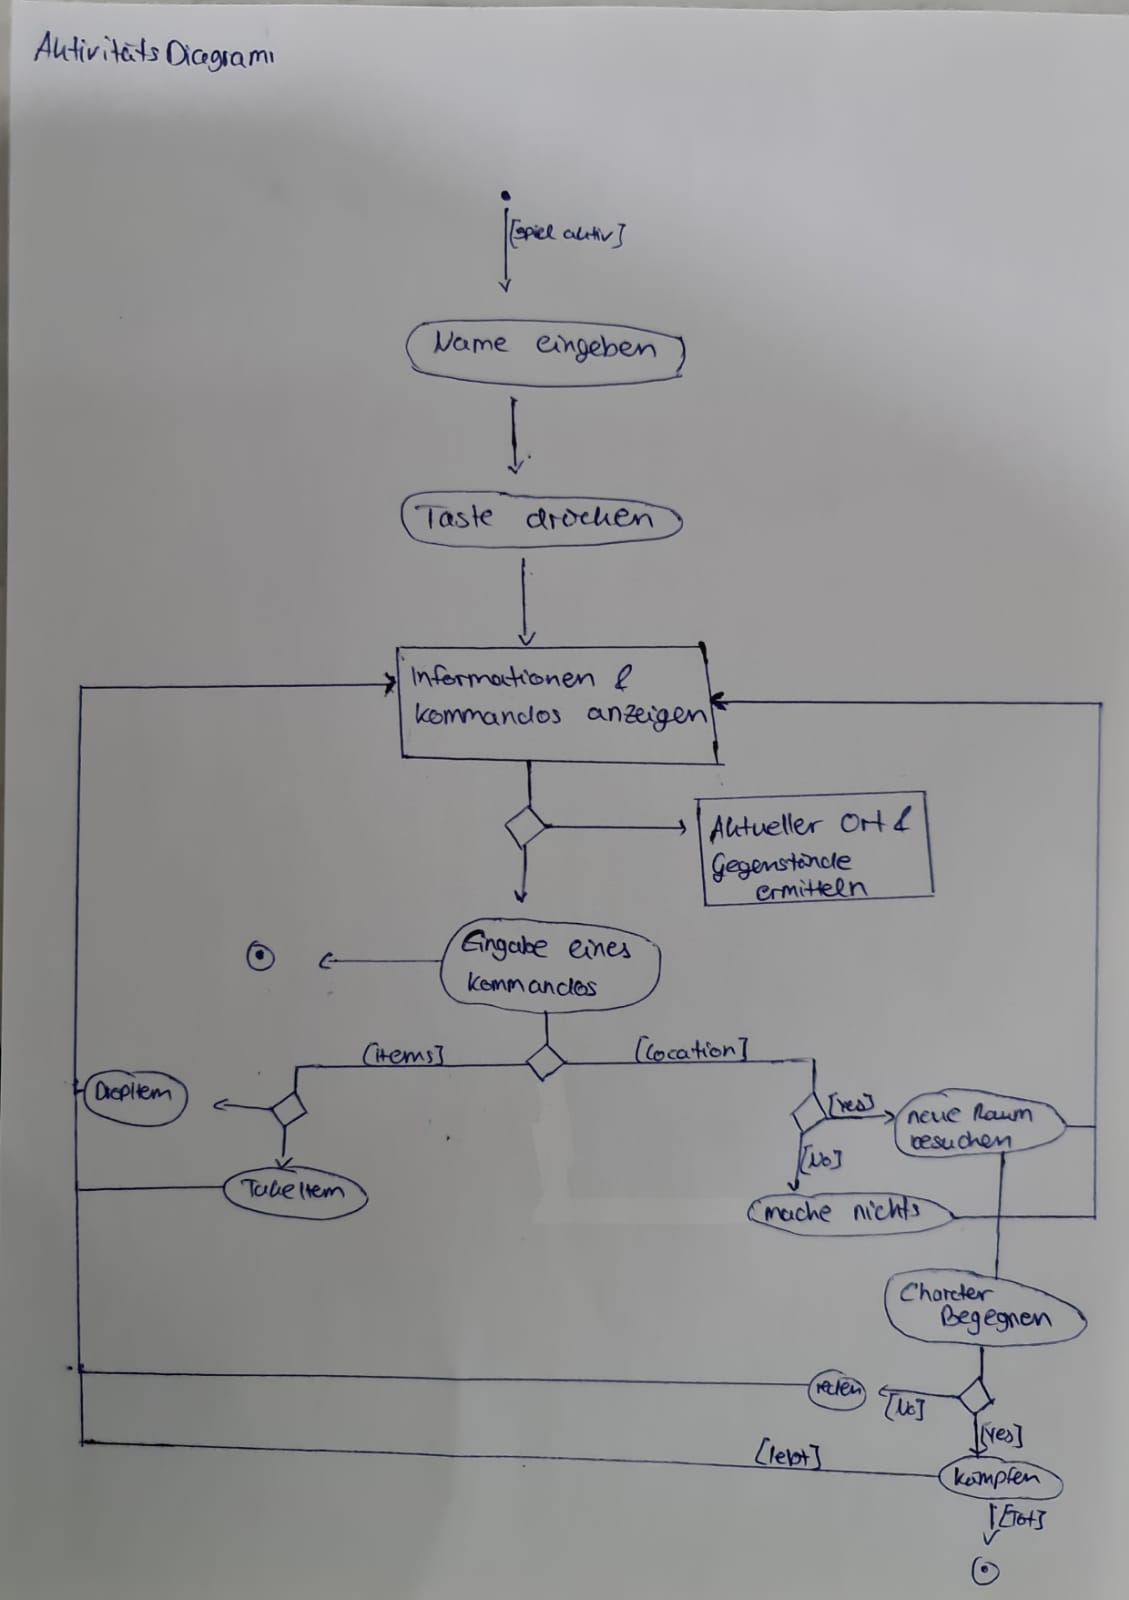 Aktivitäts Diagramm
[spiel aktiv]
Name eingeben
Taste drücken
Informationen &
Kommandos anzeigen
Aktueller Ort &
Gegenstände
ermitteln
Eingabe eines
Kommandos
[items]
[location]
DropItem
TakeItem
[Yes]
neue Raum
besuchen
[No]
mache nichts
Charcter
Begegnen
reden
[No]
[Yes]
[lebt]
kämpfen
[Tot]